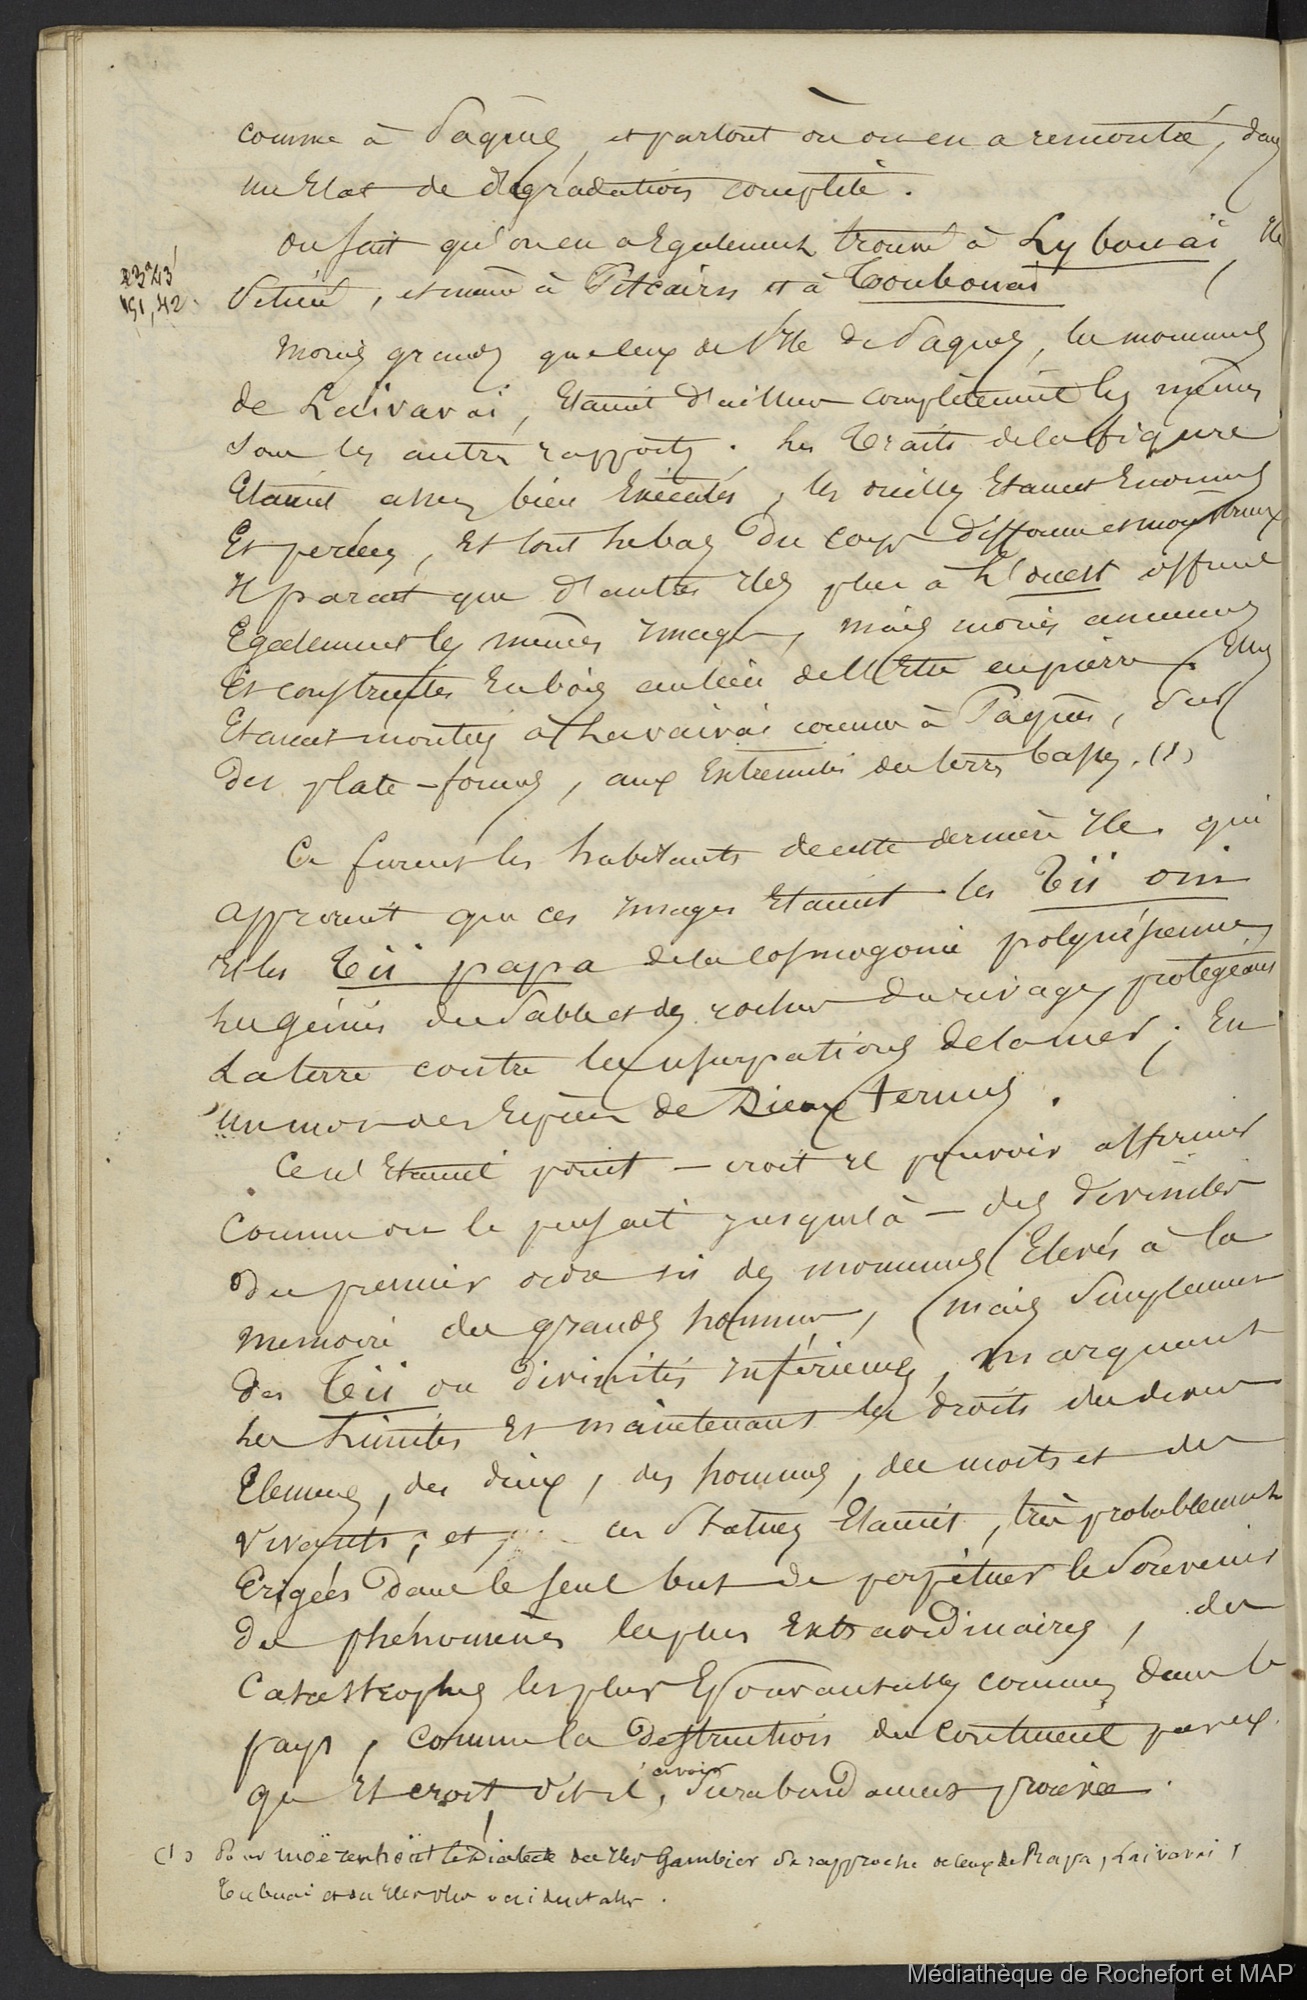 comme à Pâques, et partout où on en a remontré, dans
un Etat de dégradation complète.
On sait qu'on en a Egalement trouvé à Lybouaï, Ile
23°43'
151,42
déserte, et même à Pitcairn et à Toubouaï
Moins grands que ceux de l'Ile de Pâques, les monumens
de Laïvavaï, Etaient d'ailleurs complètement les mêmes
sous les autres rapports. Les Traits de la figure
Etaient assez bien Exécutés, les oreilles Etaient Enormes
Et percées, Et tout le bas du corps difforme et monstrueux
Il paraît que d'autres Iles plus à l'ouest offrent
Egalement les mêmes Images, mais moins anciennes
Et construites En bois au lieu de l'Etre en pierre. Elles
Etaient montées à Laivaivaï comme à Pâques, sur
des plate-formes, aux Extrémités des terres basses. (1)
Ce furent les habitants de cette dernière Ile qui
apprirent que ces Images Etaient les Tii oni
Et les Tii papa de la Cosmogonie polynésienne,
les génies des Sables et des rochers du rivage, protégeant
La terre contre les usurpations de la mer; En
un mot des Espèces de Dieux termes.
Ce n'Etaient point – croit il pouvoir affirmer
Comme on le pensait jusque là – des Divinités
du premier ordre ni des monumens Elevés à la
mémoire des grands hommes, mais Simplement
des Tii ou divinités inférieures, marquant
les limites Et maintenant les droits des divers
Elemens, des dieux, des hommes, des morts et des
vivants; et ces Statues Etaient, très probablement
Erigées Dans le seul but de perpétuer le Souvenir
des phénomènes les plus Extraordinaires, des
Catastrophes les plus Epouvantables connues dans le
pays, comme la destruction du Continent par ex.
qu'Il croit, dit-il, avoir Surabondamment prouvée.
(1) Pour Moërenhoüt le Dialecte des Iles Gambier se rapproche de ceux de Rapa, Laivavai,
Tubuai et des Iles plus occidentales.
Médiathèque de Rochefort et MAP